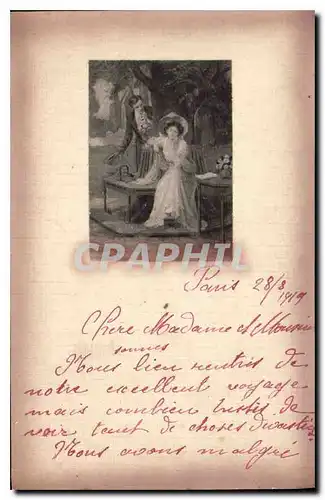 CPARAMA
Paris 28/8
1919
Chère Madame et Monsieur
sommes
Nous bien rentrés de
notre excellent voyage
mais combien tristes de
voir tant de choses dévastées
Nous avons malgré